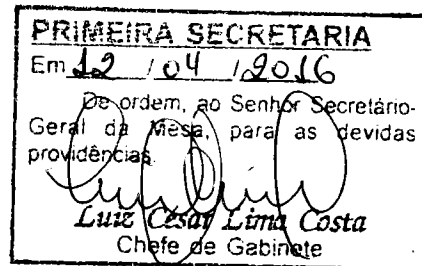 PRIMEIRA SECRETARIA
Em 12 / 04 / 2016
De ordem, ao Senhor Secretário-
Geral da Mesa, para as devidas
providências
Luiz César Lima Costa
Chefe de Gabinete